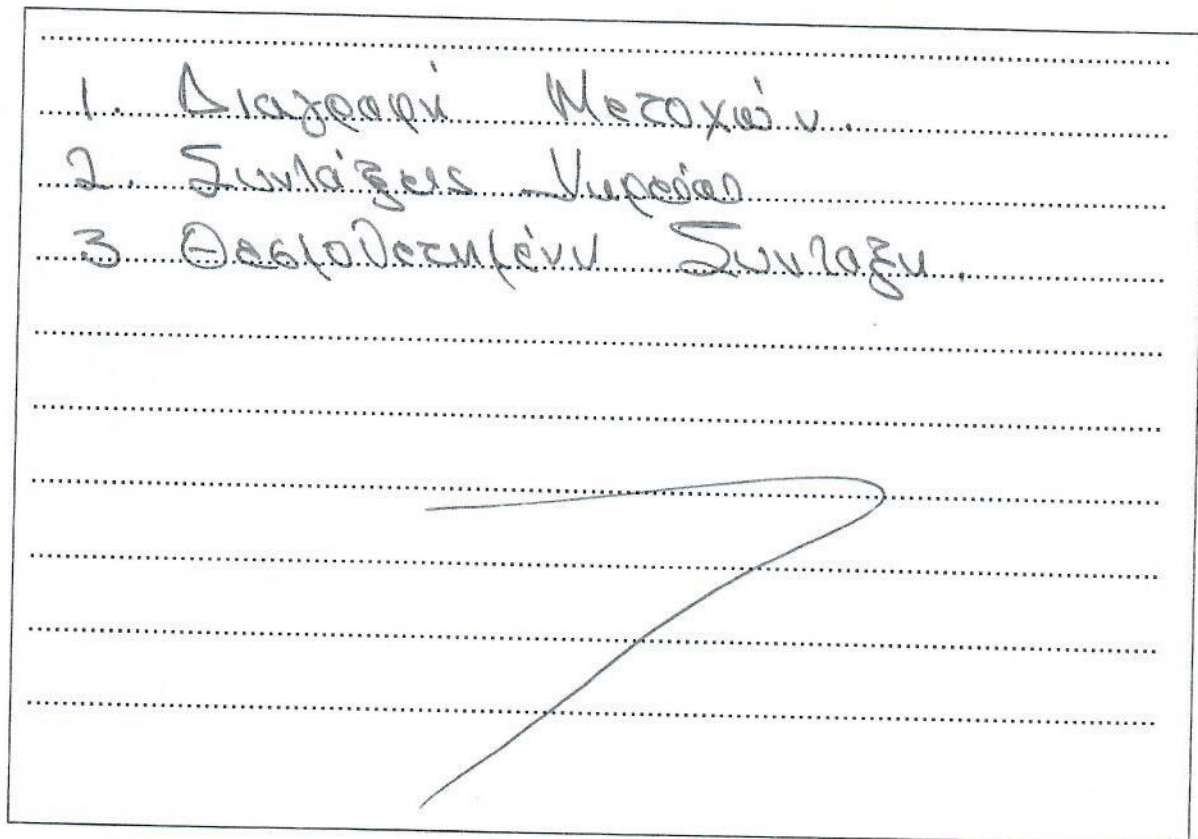 1. Διαγραφή Μετοχών.
2. Συντάξεις Χηρείας
3 Θεσμοθετημένη Συνταξη.